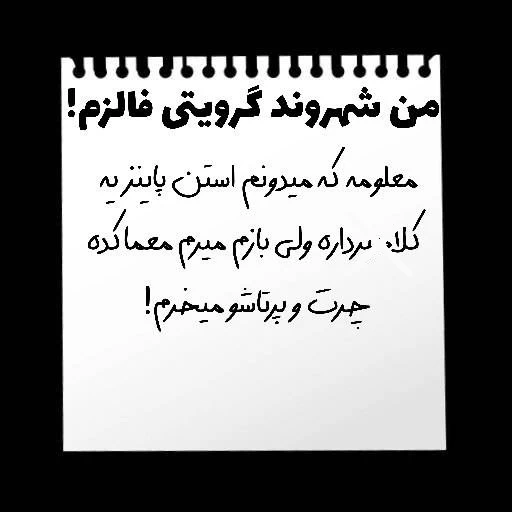 من شهروند گرویتی فالزم!
معلومه که میدونم استن پاینز یه
کلاه برداره ولی بازم میرم معماکده
چرت و پرتاشو میخرم!